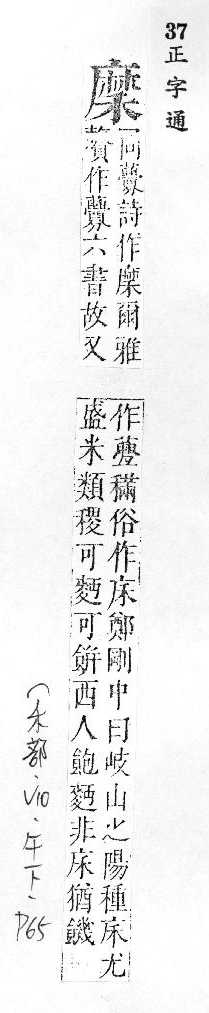 37 正字通
穈
同虋詩作穈爾雅
作虋六書故又
作虋俗作床鄭剛中曰岐山之陽種床尤
盛米類稷可麪可餅西人飽麪非床猶饑
(禾部、V10、午下、P65